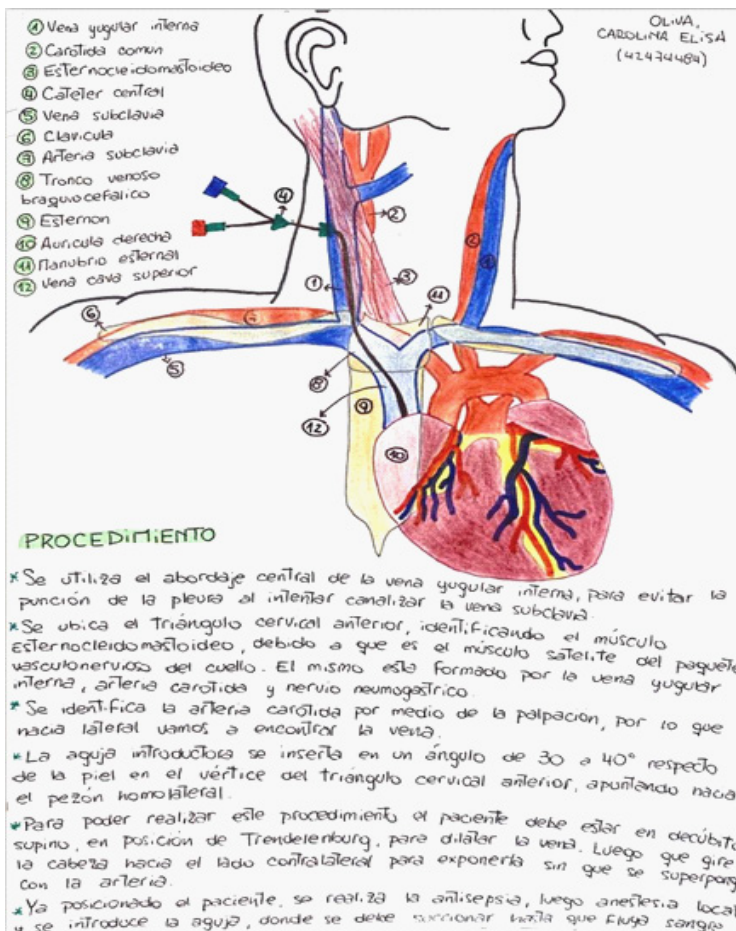 ① Vena yugular interna
② Carótida común
③ Esternocleidomastoideo
④ Catéter central
⑤ Vena subclavia
⑥ Clavícula
⑦ Arteria subclavia
⑧ Tronco venoso
braquiocefálico
⑨ Esternon
⑩ Aurícula derecha
⑪ Manubrio esternal
⑫ Vena cava superior
OLIVA,
CAROLINA ELISA
(42474484)
④
②
②
①
①
③
⑪
⑥
⑦
⑤
⑧
⑨
⑫
⑩
PROCEDIMIENTO
* Se utiliza el abordaje central de la vena yugular interna, para evitar la
punción de la pleura al intentar canalizar la vena subclava.
* Se ubica el triángulo cervical anterior, identificando el músculo
esternocleidomastoideo, debido a que es el músculo satélite del paquete
vasculonervioso del cuello. El mismo esta formado por la vena yugular
interna, arteria carótida y nervio neumogastrico.
* Se identifica la arteria carótida por medio de la palpación, por lo que
hacia lateral vamos a encontrar la vena.
* La aguja introductora se inserta en un ángulo de 30 a 40° respecto
de la piel en el vértice del triángulo cervical anterior, apuntando hacia
el pezón homolateral.
* Para poder realizar este procedimiento el paciente debe estar en decúbito
supino, en posición de Trendelenburg, para dilatar la vena. Luego que gire
la cabeza hacia el lado contralateral para exponerla sin que se superponga
con la arteria.
* Ya posicionado el paciente, se realiza la antisepsia, luego anestesia local
y se introduce la aguja, donde se debe succionar hasta que fluya sangre